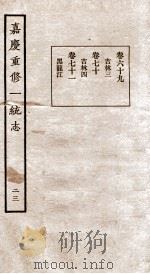 嘉慶重修一統志
二三
卷六十九
吉林三
卷七十
吉林四
卷七十一
黑龍江